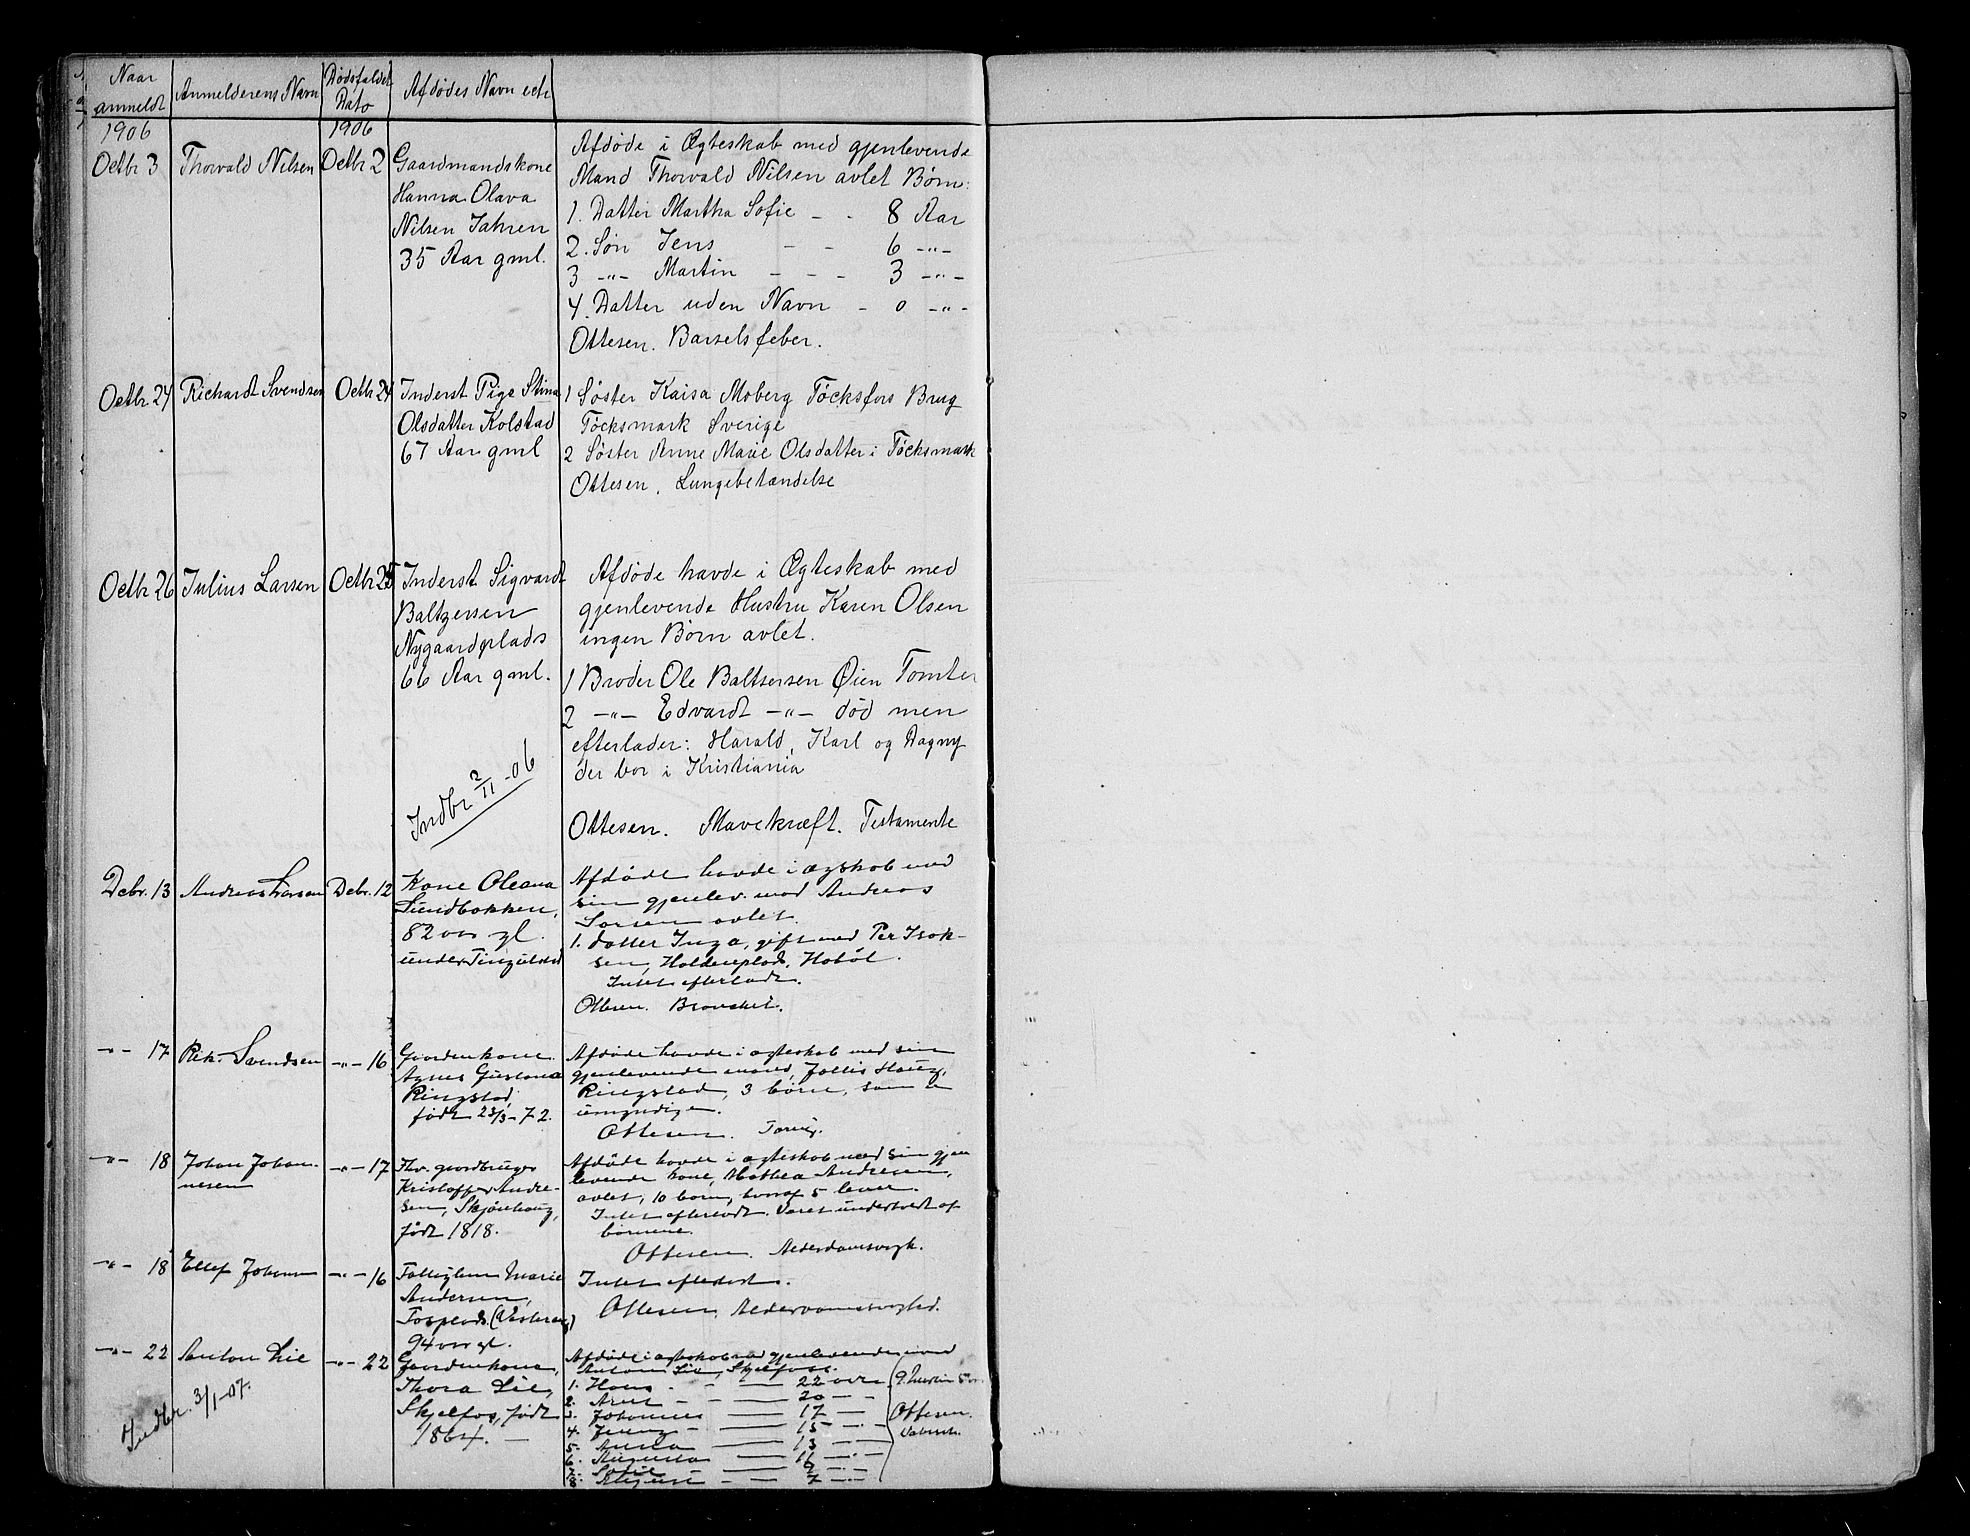 Naar anmeldt
Anmelderens Navn
Dødsfaldet Dato
Afdødes Navn etc
1906
1906
Octbr 3
Thorvald Nilsen
Octbr 2
Gaardmandskone
Hanna Olava
Nilsen Jahren
35 Aar gml.
Afdøde i Ægteskab med gjenlevende
Mand Thorvald Nilsen avlet Børn:
1. Datter Martha Sofie - - 8 Aar
2. Søn Jens - - 6 -"-
3 -"- Martin - - - 3 -"-
4. Datter uden Navn - 0 -"-
Ottesen. Barselsfeber.
Octbr 24
Richardt Svendsen
Octbr 24
Inderst Pige Stina
Olsdatter Kolstad
67 Aar gml
1 Søster Kaisa Moberg Töcksfors Brug
Töcksmark Sverige
2 Søster Anne Marie Olsdatter i Töcksmark
Ottesen. Lungebetændelse
Octbr 26
Julius Larsen
Octbr 25
Inderst Sigvardt
Baltzersen
Nygaardplads
66 Aar gml.
Indbr 2/11-06
Afdøde havde i Ægteskab med
gjenlevende Hustru Karen Olsen
ingen Børn avlet.
1 Broder Ole Baltsersen Øien Tomter
2 -"- Edvardt -"- død men
efterlader: Harald, Karl og Dagny
der bor i Kristiania
Ottesen. Mavekræft. Testamente
Dcbr. 13
Andreas Larsen
Dcbr. 12
Kone Oleana
Sundbakken,
82 aar gl.
under Tinguldstad
Afdøde havde i ægskab med
sin gjenlev. mand Andreas
Larsen avlet
1. datter Inga, gift med Per Isak-
sen, Holdenplads, Hobøl.
Intet efterladt.
Ottesen. Bronchit.
-"- 17
Rik. Svendsen
-"- 16
Gaardmkone
Agnes Gustava
Ringstad,
født 23/3-72.
Afdøde havde i ægteskab med sin
gjenlevende mand,
Ringstad, 3 børn, som er
umyndige.
Ottesen. Tæring.
-"- 18
Johan Johan-
nesen
-"- 17
Fhv. gaardbruger
Kristoffer Andre-
sen, Skjønhaug,
født 1818.
Afdøde havde i ægteskab med sin gjen
levende kone, Mathea Andresen,
avlet, 10 børn, hvoraf 5 lever.
Intet efterladt. Været understøttet af
børnene.
Ottesen. Alderdomssvagh.
-"- 18
Ellef Johansen
-"- 16
Fattiglem Marie
Andersen,
Fosplads. (Vestereng)
94 aar gl.
Intet efterladt.
Ottesen. Alderdomssvaghed.
-"- 22
Anton Lie
-"- 22
Gaardmkone,
Thora Lie,
Skjelfos, født
1864. -
Indbr. 3/1-07.
Afdøde i ægteskab med gjenlevende mand
Anton Lie, Skjelfoss.
1. Hans - - 22 aar
2. Arnt - - 20 - -
3. Johannes - 17 -
4. - 15 -"-
5. Anna - 13 -"-
6. Augusta - 11 -"-
7. Sofie - 9 -"-
8. August - - 7 -"-
Ottesen.